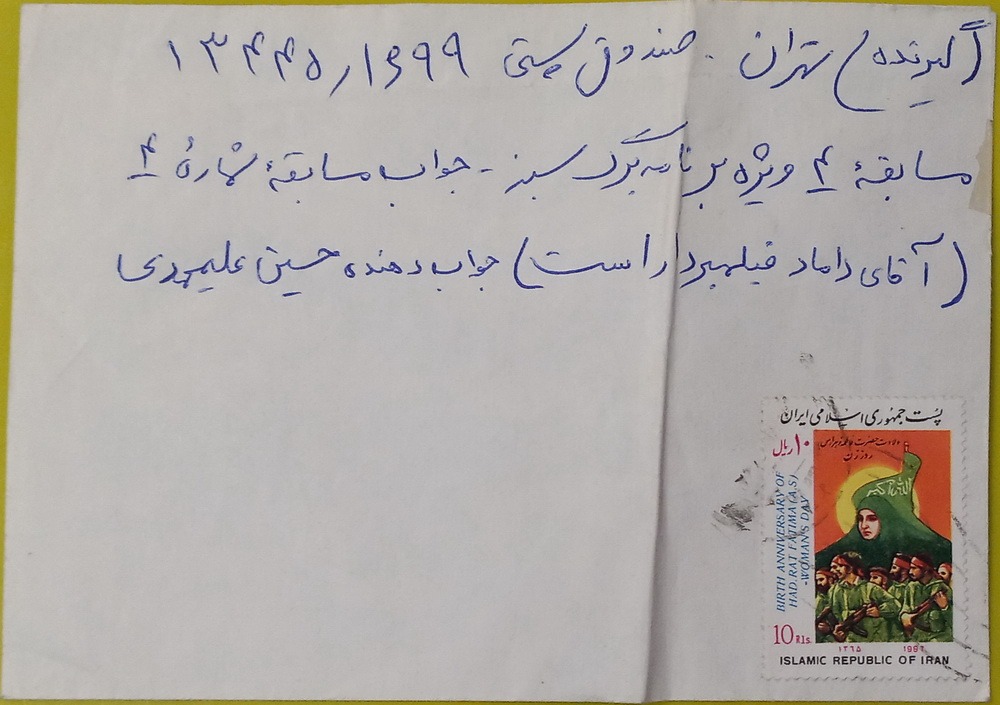 (گیرنده) تهران - صندوق پستی ۱۳۴۴۵/۱۶۹۹
مسابقهٔ ۴ ویژه برنامه برگ سبز - جواب مسابقهٔ شمارهٔ ۴
(آقای داماد فیلمبردار است) جواب دهنده حسین علیمهدی
پست جمهوری اسلامی ایران
۱۰ ریال
ولادت حضرت فاطمه زهرا (س)
روز زن
الله اکبر
BIRTH ANNIVERSARY OF
HAD.RAT FATIMA (A.S)
-WOMAN'S DAY
10 Rls.
۱۳۶۵ 1987
ISLAMIC REPUBLIC OF IRAN